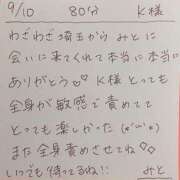 9/10 80分 K様
わざわざ埼玉から みとに
会いに来てくれて本当に本当に
ありがとう♡♡ K様とっても
全身が敏感で責めてて
とっても楽しかった(*´ω`*)
また全身責めさせてね♡♡
いつでも待ってるね!! みと